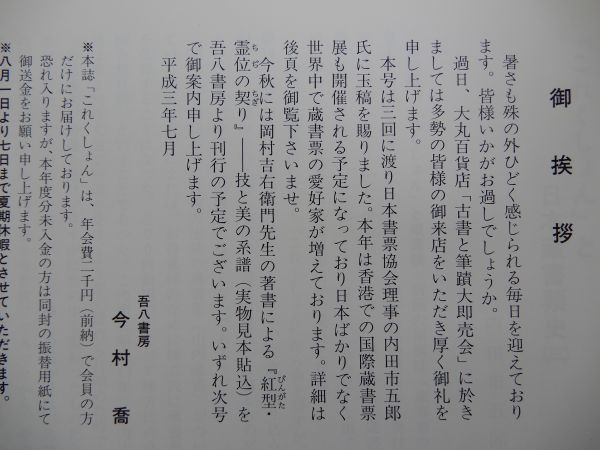 御挨拶
暑さも殊の外ひどく感じられる毎日を迎えており
ます。皆様いかがお過しでしょうか。
過日、大丸百貨店「古書と筆蹟大即売会」に於き
ましては多勢の皆様の御来店をいただき厚く御礼を
申し上げます。
本号は三回に渡り日本書票協会理事の内田市五郎
氏に玉稿を賜りました。本年は香港での国際蔵書票
展も開催される予定になっており日本ばかりでなく
世界中で蔵書票の愛好家が増えております。詳細は
後頁を御覧下さいませ。
今秋には岡村吉右衛門先生の著書による『紅型・
びんがた
霊位の契り』――技と美の系譜（実物見本貼込）を
ちぎ
吾八書房より刊行の予定でございます。いずれ次号
で御案内申し上げます。
平成三年七月
吾八書房
今村喬
※本誌「これくしょん」は、年会費二千円（前納）で会員の方
だけにお届けしております。
恐れ入りますが、本年度分未入金の方は同封の振替用紙にて
御送金をお願い申し上げます。
※八月一日より七日まで夏期休暇とさせていただきます。